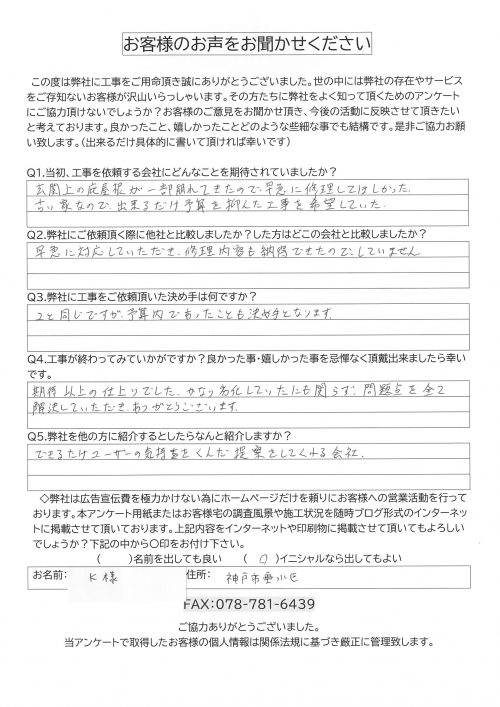 お客様のお声をお聞かせください
この度は弊社に工事をご用命頂き誠にありがとうございました。世の中には弊社の存在やサービス
をご存知ないお客様が沢山いらっしゃいます。その方たちに弊社をよく知って頂くためのアンケート
にご協力頂けないでしょうか？お客様のご意見をお聞かせ頂き、今後の活動に反映させて頂きたい
と考えております。良かったこと、嬉しかったことどのような些細な事でも結構です。是非ご協力お願
い致します。（出来るだけ具体的に書いて頂ければ幸いです）
Q1.当初、工事を依頼する会社にどんなことを期待されていましたか？
玄関上の庇屋根が一部崩れてきたので、早急に修理してほしかった。
古い家なので、出来るだけ予算を抑えた工事を希望していた。
Q2.弊社にご依頼頂く際に他社と比較しましたか？した方はどこの会社と比較しましたか？
早急に対応していただき、修理内容も納得できたので、していません。
Q3.弊社に工事をご依頼頂いた決め手は何ですか？
2と同じですが、予算内であったことも決め手となります。
Q4.工事が終わってみていかがですか？良かった事・嬉しかった事を忌憚なく頂戴出来ましたら幸い
です。
期待以上の仕上りでした。かなり劣化していたにも関らず、問題点を全て
解決していただき、ありがとうございます。
Q5.弊社を他の方に紹介するとしたらなんと紹介しますか？
できるだけユーザーの気持をくんだ提案をしてくれる会社。
◇弊社は広告宣伝費を極力かけない為にホームページだけを頼りにお客様への営業活動を行って
おります。本アンケート用紙またはお客様宅の調査風景や施工状況を随時ブログ形式のインターネッ
トに掲載させて頂いております。上記内容をインターネットや印刷物に掲載させて頂いてもよろしい
でしょうか？下記の中から〇印をお付け下さい。
（　　）名前を出しても良い　（ 〇 ）イニシャルなら出してもよい
お名前： K様 住所： 神戸市垂水区
FAX:078-781-6439
ご協力ありがとうございました。
当アンケートで取得したお客様の個人情報は関係法規に基づき厳正に管理致します。